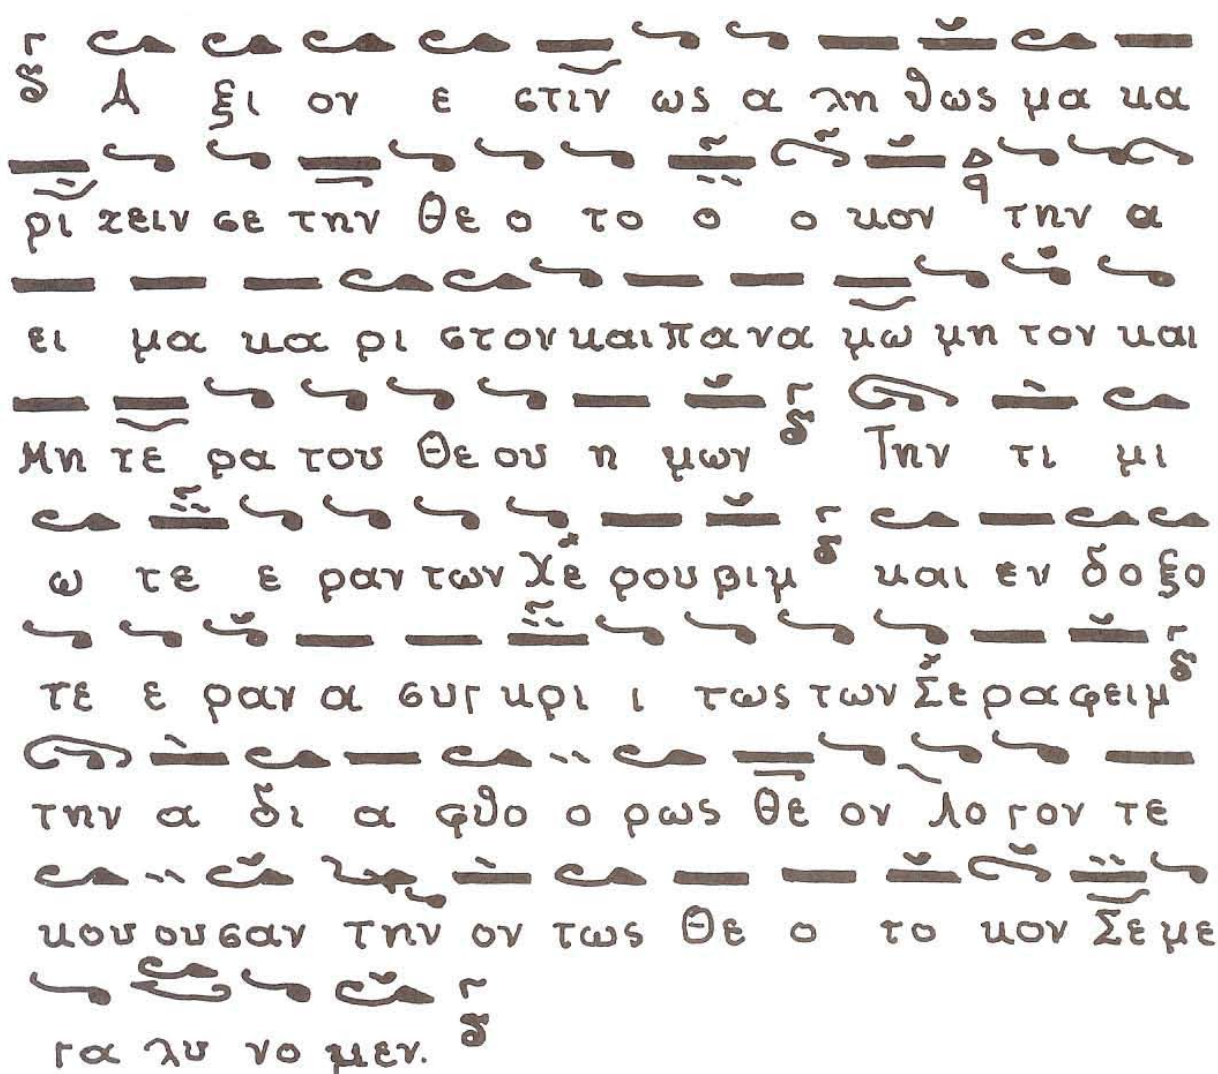 Α ξι ον ε στιν ως α λη θως μα κα
ρι ζειν σε την Θε ο το ο ο κον την α
ει μα κα ρι στον και πα να μω μη τον και
Μη τε ρα του Θε ου η μων Την τι μι
ω τε ε ραν των Χε ρου βιμ και εν δο ξο
τε ε ραν α συγ κρι ι τως των Σε ρα φειμ
την α δι α φθο ο ρως Θε ον Λο γον τε
κου ου σαν την ον τως Θε ο το κον Σε με
γα λυ νο μεν.